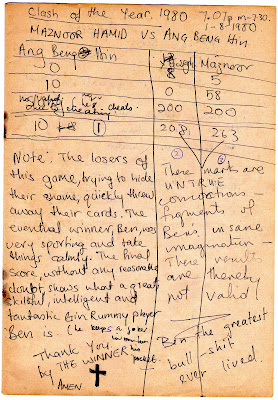 Clash of the Year. 1980 7.01 pm - 7.30.
MAZNOOR HAMID VS ANG BENG Hin 1-8-1980
Ang Beng Hin Maznoor
0 8 5
10 0 58
cheating cheats. 200 200
10 ① 208 263
② ③
Note: The losers of
this game, trying to hide
their shame, quickly threw
away their cards. The
eventual winner, Ben, was
very sporting and take
things calmly. The final
Score, without any reasonable
doubt, shows what a great,
skilful, intelligent and
fantastic Gin Rummy player
Ben is. (he keeps a joker
in his pocket.
Thank You
by THE WINNER
AMEN
These mark are
UNTRUE
concoctions -
figments of
Ben's insane
imagination -
These results
are thereby
not valid!
Ben the greatest
bull-shit
ever lived.